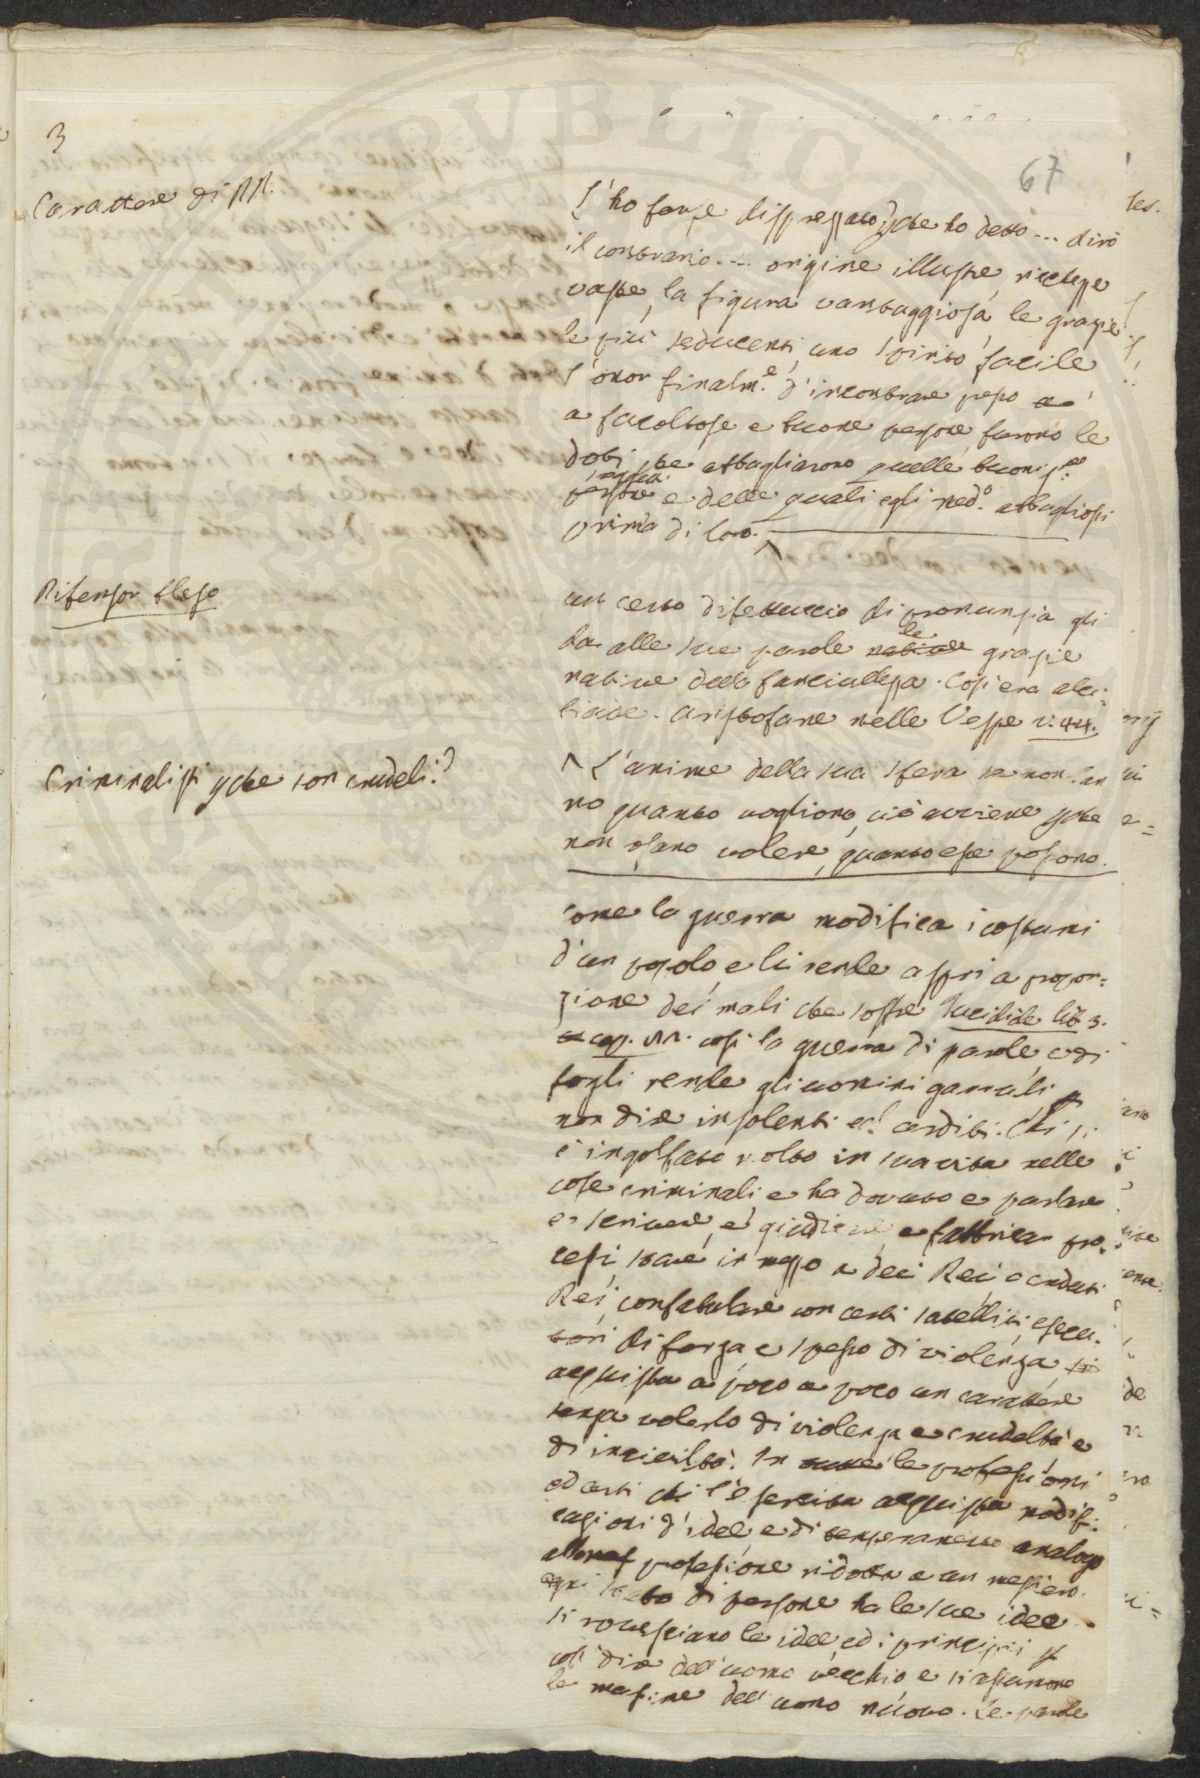 3
67
Carattere di RR.
L'ho forse disprezzato pche ho detto ... dirò
il contrario ... origine illustre, richezze
vaste, la figura vantaggiosa, le grazie
le piú seducenti, uno spirito facile
l'onor finalm.e d'incontrare presso
a facoltose e buone persone furono le
doti che abbagliarono quelle buone
persone e delle quali egli med.o abbagliossi
prima di loro.
Difensor bleso
un certo difettuccio di pronunzia gli
da alle sue parole le native grazie
native della fanciullezza. Cosi era alci-
biade. Aristofane nelle Vespe v. 44.
Criminalisti pche son crudeli?
^ L'anime della sua sfera se non fan
no quanto vogliono, ciò avviene pche
non osano volere, quanto esse possono.
come la guerra modifica i costumi
d'un popolo, e li rende aspri a propor=
zione dei mali che soffre Tucidide lib 3.
cap. cosi la guerra di parole, e di
fogli rende gli uomini garruli p
non dire insolenti ed arditi. Chi si
è ingolfato molto in sua vita nelle
cose criminali e ha dovuto e parlare
e scrivere, e giudicare e fabbricar pro-
cessi, stare in mezzo a dei Rei o creduti
Rei, confabulare con certi satelliti, esecu-
tori di forza, e spesso di violenza
acquista a poco a poco un carattere
senza volerlo di violenza e crudeltà e
di inciviltà. In tutte le professioni
ed arti chi l'esercita acquista modifi-
cazioni d'idee e di temperamento analogo
alla professione ridotta a un mestiero.
ogni stato di persone ha le sue idee.
si rovesciano le idee, ed i principii p
cosi dire dell'uomo vecchio e si assumono
le massime dell'uomo nuovo. Le parole